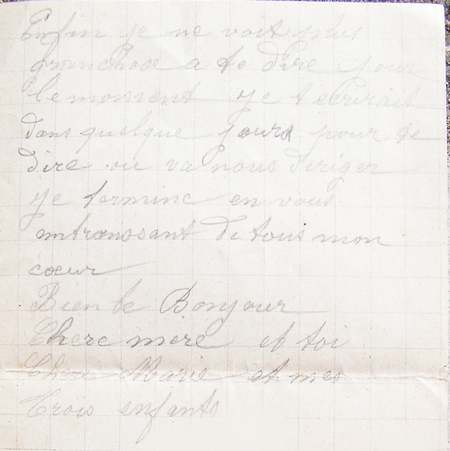 Enfin je ne voit plus
grand chose a te dire pour
le moment je t ecrirait
dans quelque jours pour te
dire ou va nous diriger
je termine en vous
embrassant de tous mon
cœur
Bien le Bonjour
Chere mere et toi
Chere Marie et mes
Trois enfants